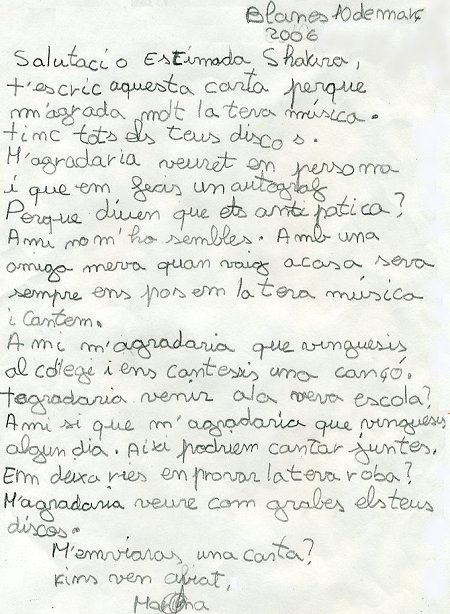 Blanes 10 de març
2006
Salutació Estimada Shakira,
t'escric aquesta carta perque
m'agrada molt la teva música.
tinc tots els teus discos.
M'agradaria veuret en persona
i que em fecis un autograf
Porque diuen que ets antipatica?
A mi no m'ho sembles. Amb una
amiga meva quan vaig a casa seva
sempre ens posem la teva música
i cantem.
A mi m'agradaria que vinguesis
al col'legi i ens cantesis una cançó.
tagradaria venir a la meva escola?
A mi si que m'agradaria que vinguesis
algun dia. Aixi podriem cantar juntes.
Em deixaries enprovar la teva roba?
M'agradaria veure com grabes els teus
discos.
M'enviaras, una carta?
Fins ven aviat,